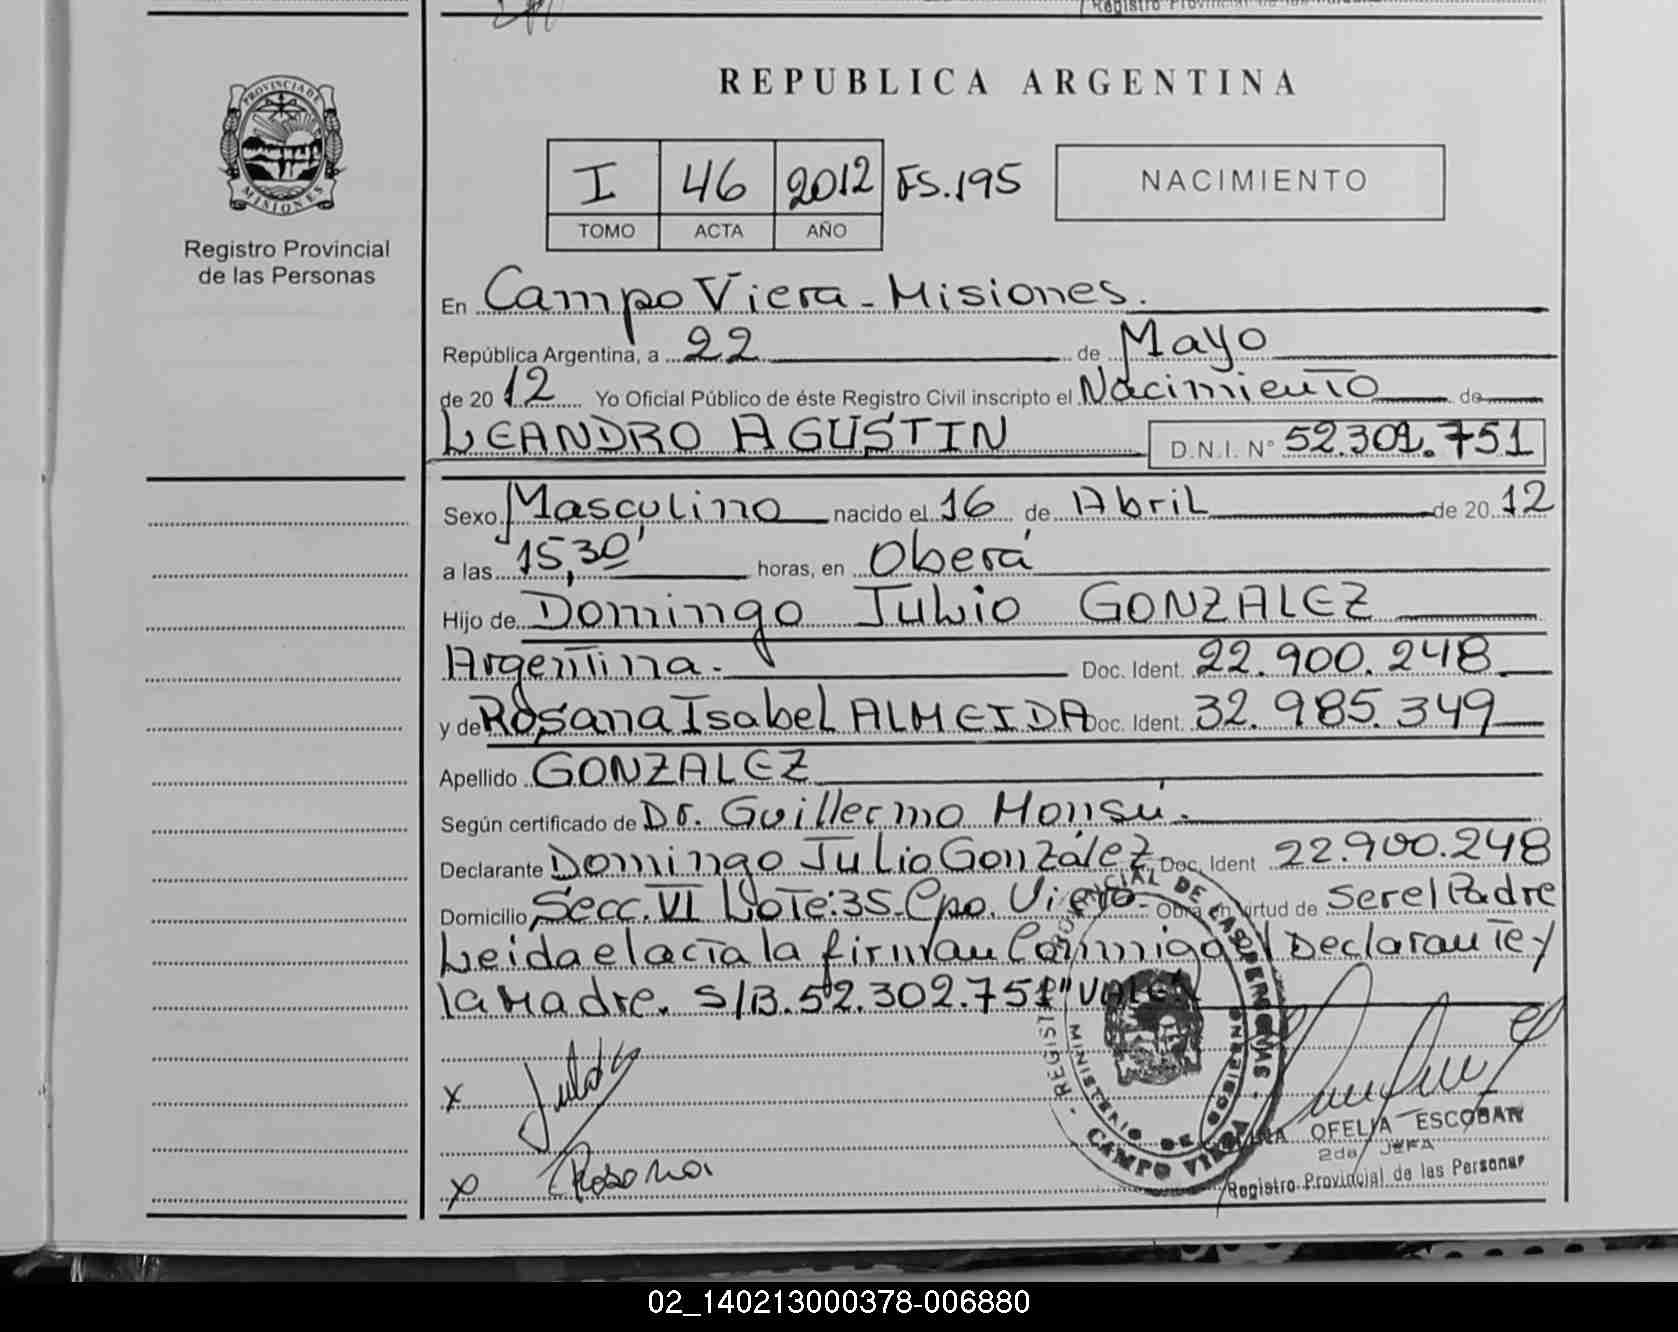 Registro Provincial de las
REPUBLICA ARGENTINA
PROVINCIA DE
MISIONES
Registro Provincial
de las Personas
I 46 2012 FS.195
TOMO ACTA AÑO
NACIMIENTO
En Campo Viera - Misiones.
República Argentina, a 22 de Mayo
de 20 12 Yo Oficial Público de éste Registro Civil inscripto el Nacimiento de
LEANDRO AGUSTIN D.N.I. N° 52.301.751
Sexo Masculino nacido el 16 de Abril de 20 12
a las 15,30' horas, en Oberá
Hijo de Domingo Julio GONZALEZ
Argentina. Doc. Ident. 22.900.248
y de Rosana Isabel ALMEIDA Doc. Ident. 32.985.349
Apellido GONZALEZ
Según certificado de Dr. Guillermo Monsú.
Declarante Domingo Julio González Doc. Ident 22.900.248
Domicilio Secc. VI Lote: 35 - Cpo. Viera - Obra en virtud de Ser el Padre
Leida el acta la firman Conmigo el Declarante y
la Madre. S/B. 52.302.751" VALEN
REGISTRO PROVINCIAL DE LAS PERSONAS -
MINISTERIO DE GOBIERNO
CAMPO VIERA
x Julio
x Rosana
OFELIA ESCOBAR
2da JEFA
Registro Provincial de las Personas
02_140213000378-006880